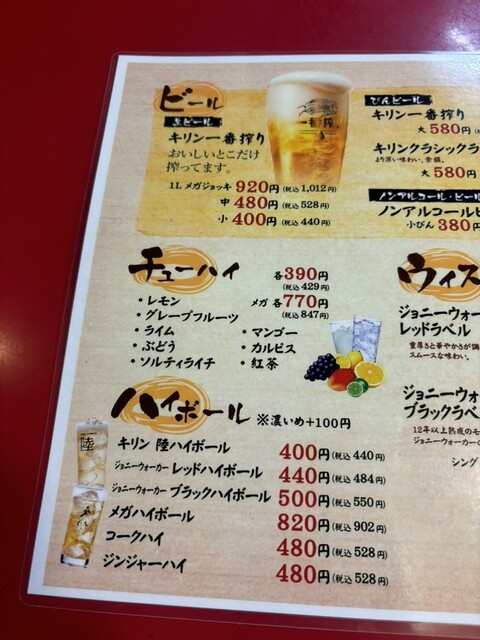 ビール
生ビール
キリン一番搾り
おいしいとこだけ
搾ってます。
1L メガジョッキ 920円(税込1,012円)
中 480円(税込528円)
小 400円(税込440円)
一番搾
びんビール
キリン一番搾り
大 580円
キリンクラシックラ
より深い味わい、余韻。
大 580円
ノンアルコール・ビール
ノンアルコールビ
小びん 380円
チューハイ
各390円
(税込429円)
メガ 各770円
(税込847円)
・レモン
・グレープフルーツ
・ライム
・ぶどう
・ソルティライチ
・マンゴー
・カルピス
・紅茶
ウイス
ジョニーウォー
レッドラベル
豊厚さと華やかさが調
スムースな味わい。
ジョニーウォー
ブラックラベ
12年以上熟成のモ
ジョニーウォーカーの
シング
ハイボール ※濃いめ+100円
陸
キリン 陸ハイボール 400円(税込440円)
ジョニーウォーカー レッドハイボール 440円(税込484円)
ジョニーウォーカー ブラックハイボール 500円(税込550円)
メガハイボール 820円(税込902円)
コークハイ 480円(税込528円)
ジンジャーハイ 480円(税込528円)